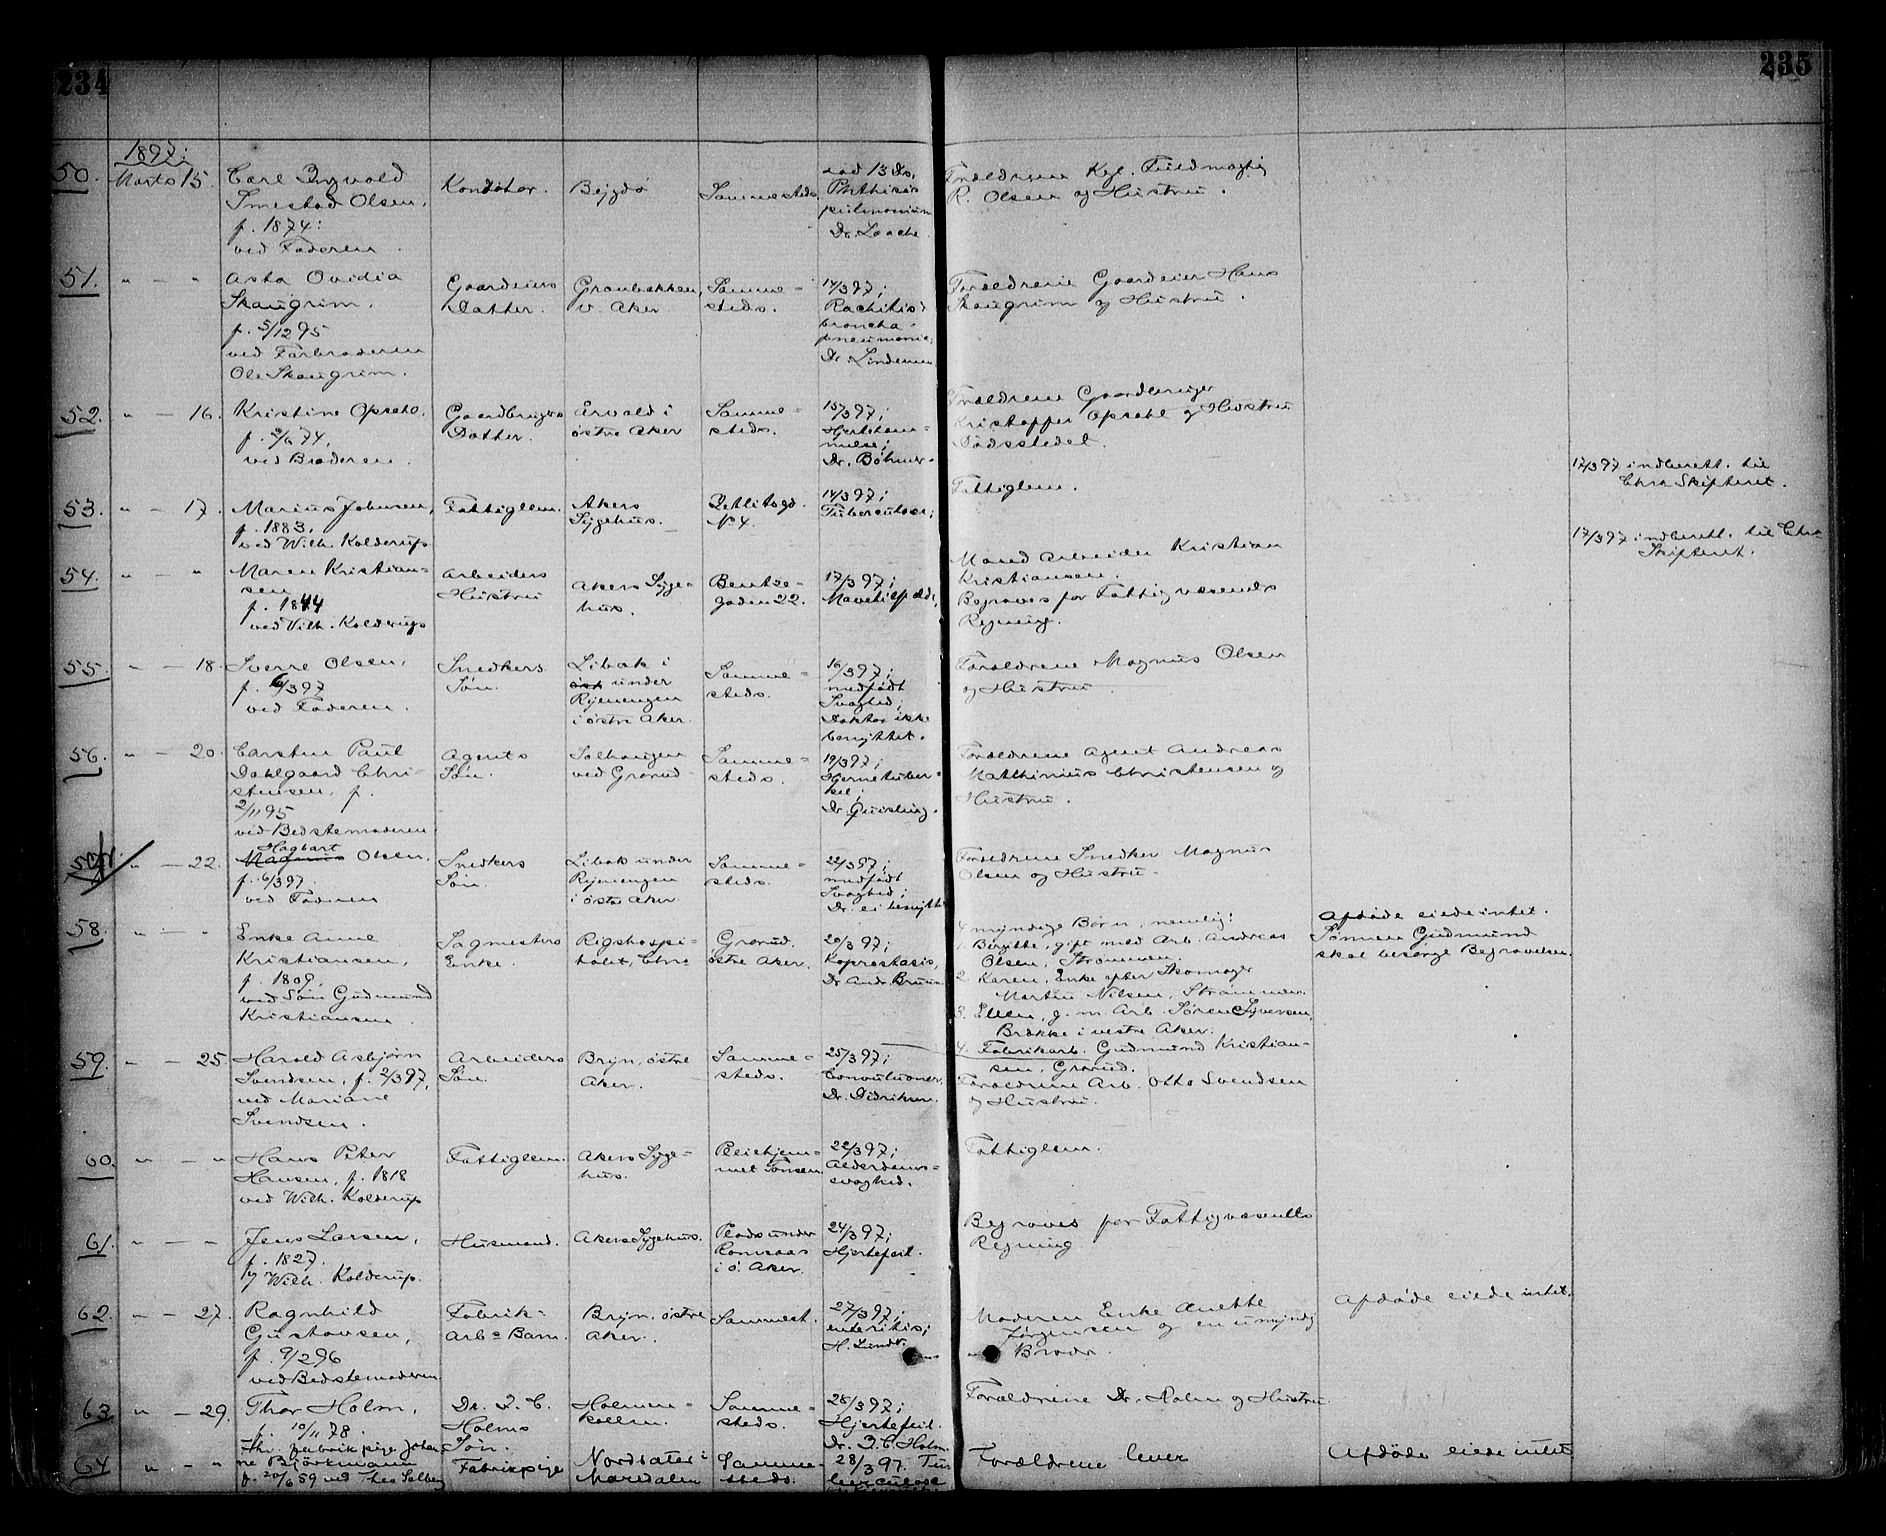 234
235
1897:
50. Marts 15. Carl Ingvald
Smestad Olsen,
f. 1874:
ved Faderen.
Kontorist.
Bygdø
Sammesteds.
sad 13 Ds,
Phthisis
pulmonum
Dr. Laache.
Forældrene Kgl. Fuldmægtig
R. Olsen og Hustru.
51. " - " Asta Ovidia
Skaugrim,
f. 5/12 95
ved Farbroderen
Ole Skaugrim.
Gaardeiers
Datter.
Granbakken,
v. Aker
Samme-
steds.
14/3 97;
Rachitis;
broncho-
pneumonie;
Dr. Lindeman
Forældrene Gaardeier Hans
Skaugrim og Hustru.
52. " - 16. Kristine Opsahl.
f. 2/6 74,
ved Broderen.
Gaardbrugers
Datter.
Arvold i
østre Aker
Samme-
steds.
15/3 97;
Hjertelam-
melse;
Dr. Böhmer.
Forældrene Gaardbruger
Kristoffer Opsahl og Hustru
Dødsstedet.
53. " - 17. Marius Johnsen,
f. 1883,
ved Wilh. Kolderup
Fattiglem.
Akers
Sygehus.
No 4.
14/3 97;
Tuberculose;
Fattiglem.
17/3 97 indberett. til
Chra Skifteret.
54. " - " Maren Kristian-
sen
f. 1844
ved Wilh. Kolderup
Arbeiders
Hustru
Akers Syge-
hus.
Bentse-
gaden 22.
17/3 97;
Mand Arbeider Kristian
Kristiansen.
Begraves for Fattigvæsenets
Regning.
17/3 97 indberett. til Chra
Skifteret.
55. " - 18. Sverre Olsen,
f. 6/3 97
ved Faderen.
Snedkers
Søn.
Libak i
øst under
Ryenengen
i østre Aker.
Samme-
steds.
16/3 97;
medfødt
Svaghed;
Doktor ikke
benyttet.
Forældrene Magnus Olsen
og Hustru
56. " - 20. Carsten Paul
Dahlgaard Chri-
stensen, f.
2/11 95
ved Bedstemoderen
Agents
Søn.
Solhaugen
ved Grorud
Samme-
steds.
19/3 97;
Hjernetuber-
kel;
Dr. Quisling.
Forældrene Agent Andreas
Mathinius Christensen og
Hustru.
57. " - 22. Hagbart
Magnus Olsen,
f. 6/3 97.
ved Faderen
Snedkers
Søn.
Libak under
Ryenengen
i østre Aker.
Samme-
steds.
22/3 97;
medfødt
Svaghed;
Dr. ei benytt.
Forældrene Snedker Magnus
Olsen og Hustru.
58. " - " Enke Anne
Kristiansen,
f. 1809,
ved Søn Gudmund
Kristiansen
Sagmesters
Enke.
Rigshospi-
talet, Chra
Grorud.
østre Aker.
20/3 97;
Koprostasis,
Dr. Andr. Bruun.
4 myndige Børn, nemlig:
1. Birgitte, gift med Arb. Andreas
Olsen, Strømmen.
2. Karen, Enke efter Skomager
Martin Nilsen, Strømmen.
3. Ellen, g. m. Arb. Søren Syversen,
Brække i vestre Aker.
4. Fabrikarb. Gudmund Kristian-
sen, Grorud.
Afdøde eiede intet.
Sønnen Gudmund
skal besørge Begravelsen.
59. " - 25. Harald Asbjørn
Svendsen, f. 2/3 97,
ved Mariane
Svendsen.
Arbeiders
Søn.
Bryn, østre
Aker.
Samme-
steds.
25/3 97;
Convulsioner.
Dr. Didriksen.
Forældrene Arb. Otto Svendsen
og Hustru.
60. " - " Hans Peter
Hansen, f. 1818
ved Wilh. Kolderup
Fattiglem.
Akers Syge-
hus.
Pleiehjem-
met Tonsen.
22/3 97;
Alderdoms-
svaghed.
Fattiglem.
61. " - " Jens Larsen,
f. 1827.
v/ Wilh. Kolderup.
Husmand.
Akers Sygehus.
Plads under
Romsaas
i ø. Aker.
24/3 97;
Hjertefeil.
Begraves for Fattigvæsenets
Regning.
62. " - 27. Ragnhild
Gustavsen,
f. 9/2 96
ved Bedstemoderen
Fabrik-
arbs Barn.
Bryn, østre
Aker.
Sammest.
27/3 97;
enteritis;
Moderen Enke Anette
Jørgensen og en umyndig
Broder.
Afdøde eiede intet.
63 " - 29. Thor Holm,
f. 10/11 78.
Dr. I. C.
Holms
Søn.
Holmen-
kollen.
Samme-
steds.
28/3 97;
Hjertefeil.
Dr. I. C. Holm.
Forældrene Dr. Holm og Hustru.
64 " - " Fhv. fabrikpige Johan-
ne Björkmann
f. 20/6 59 ved Thea Solberg
Fabrikpige
Nordsæter i
Maridalen
Samme-
steds.
28/3 97. Tu-
berculose
Forældrene lever
Afdøde eiede intet